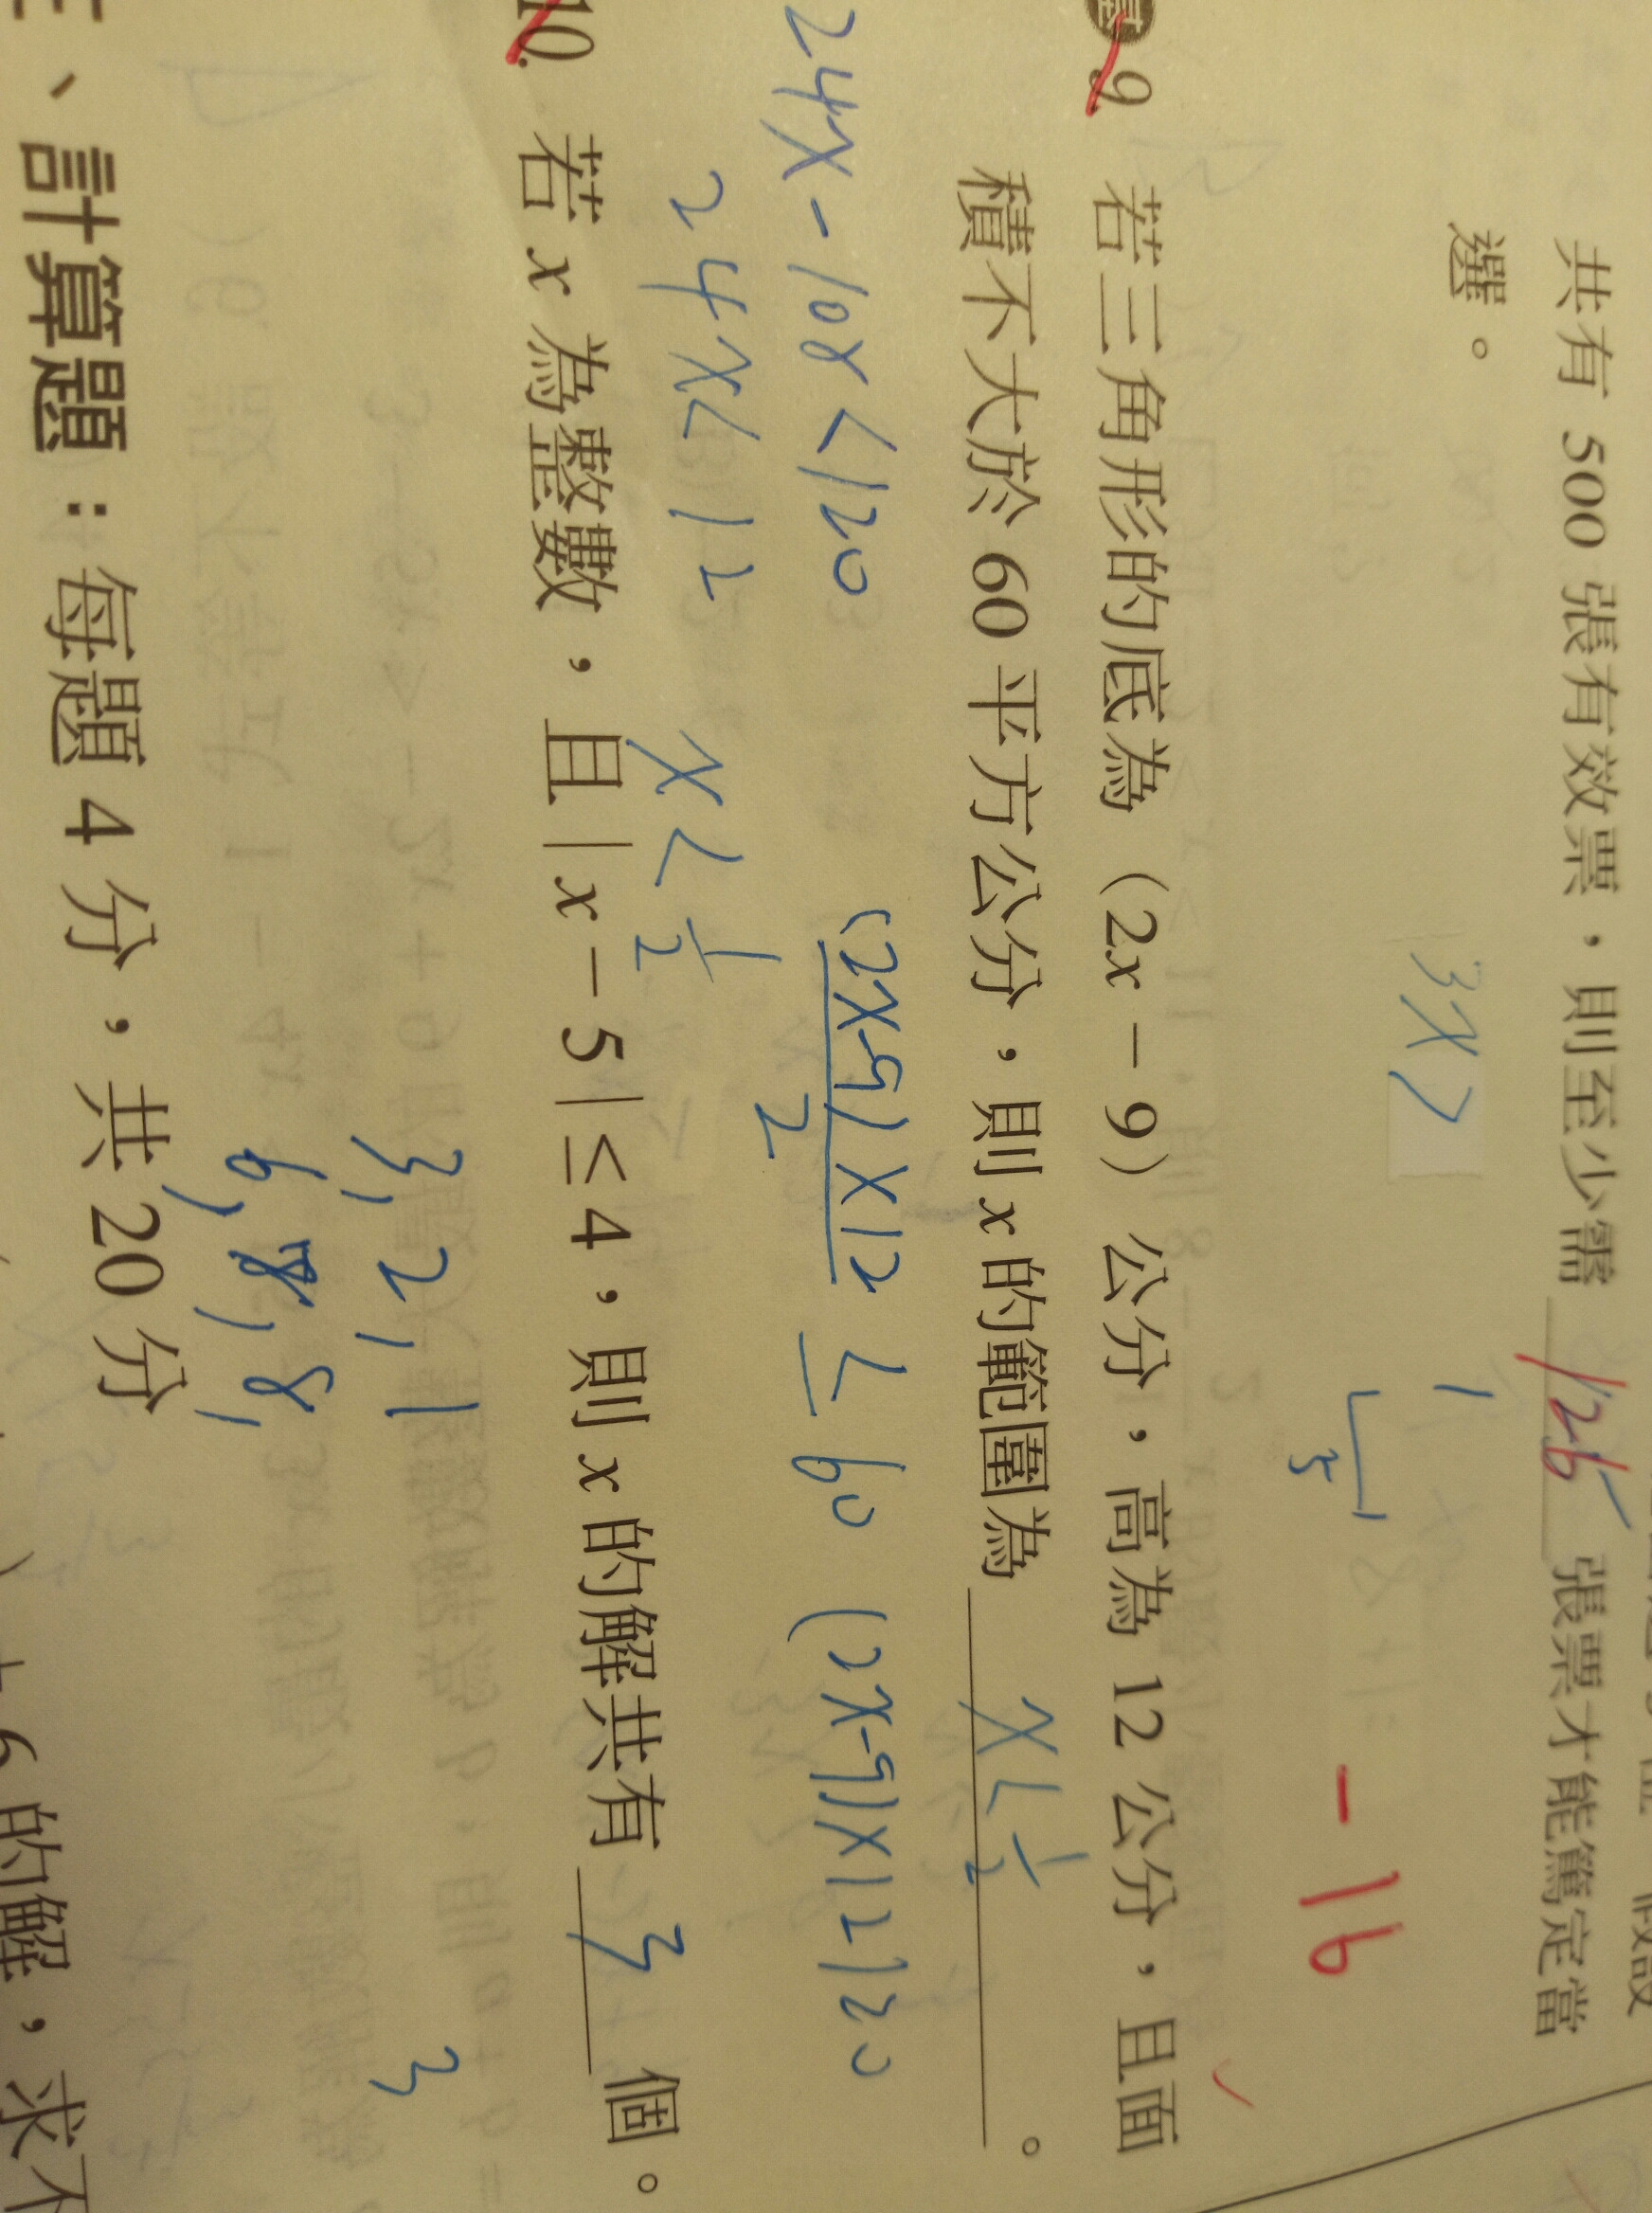 共有 500 張有效票，則至少需 126 張票才能篤定當
選。
3x>
-16
9. 若三角形的底為（2x－9）公分，高為 12 公分，且面
積不大於 60 平方公分，則 x 的範圍為 x< 1/2 。
(2x-9)×12/2 ≤ 60 (2x-9)×12 120
24x-108<120
24x<12 x< 1/2
10. 若 x 為整數，且│x－5│≤4，則 x 的解共有 3 個。
3, 2, 1
3
6, 8,
計算題：每題 4 分，共 20 分
的解，求不